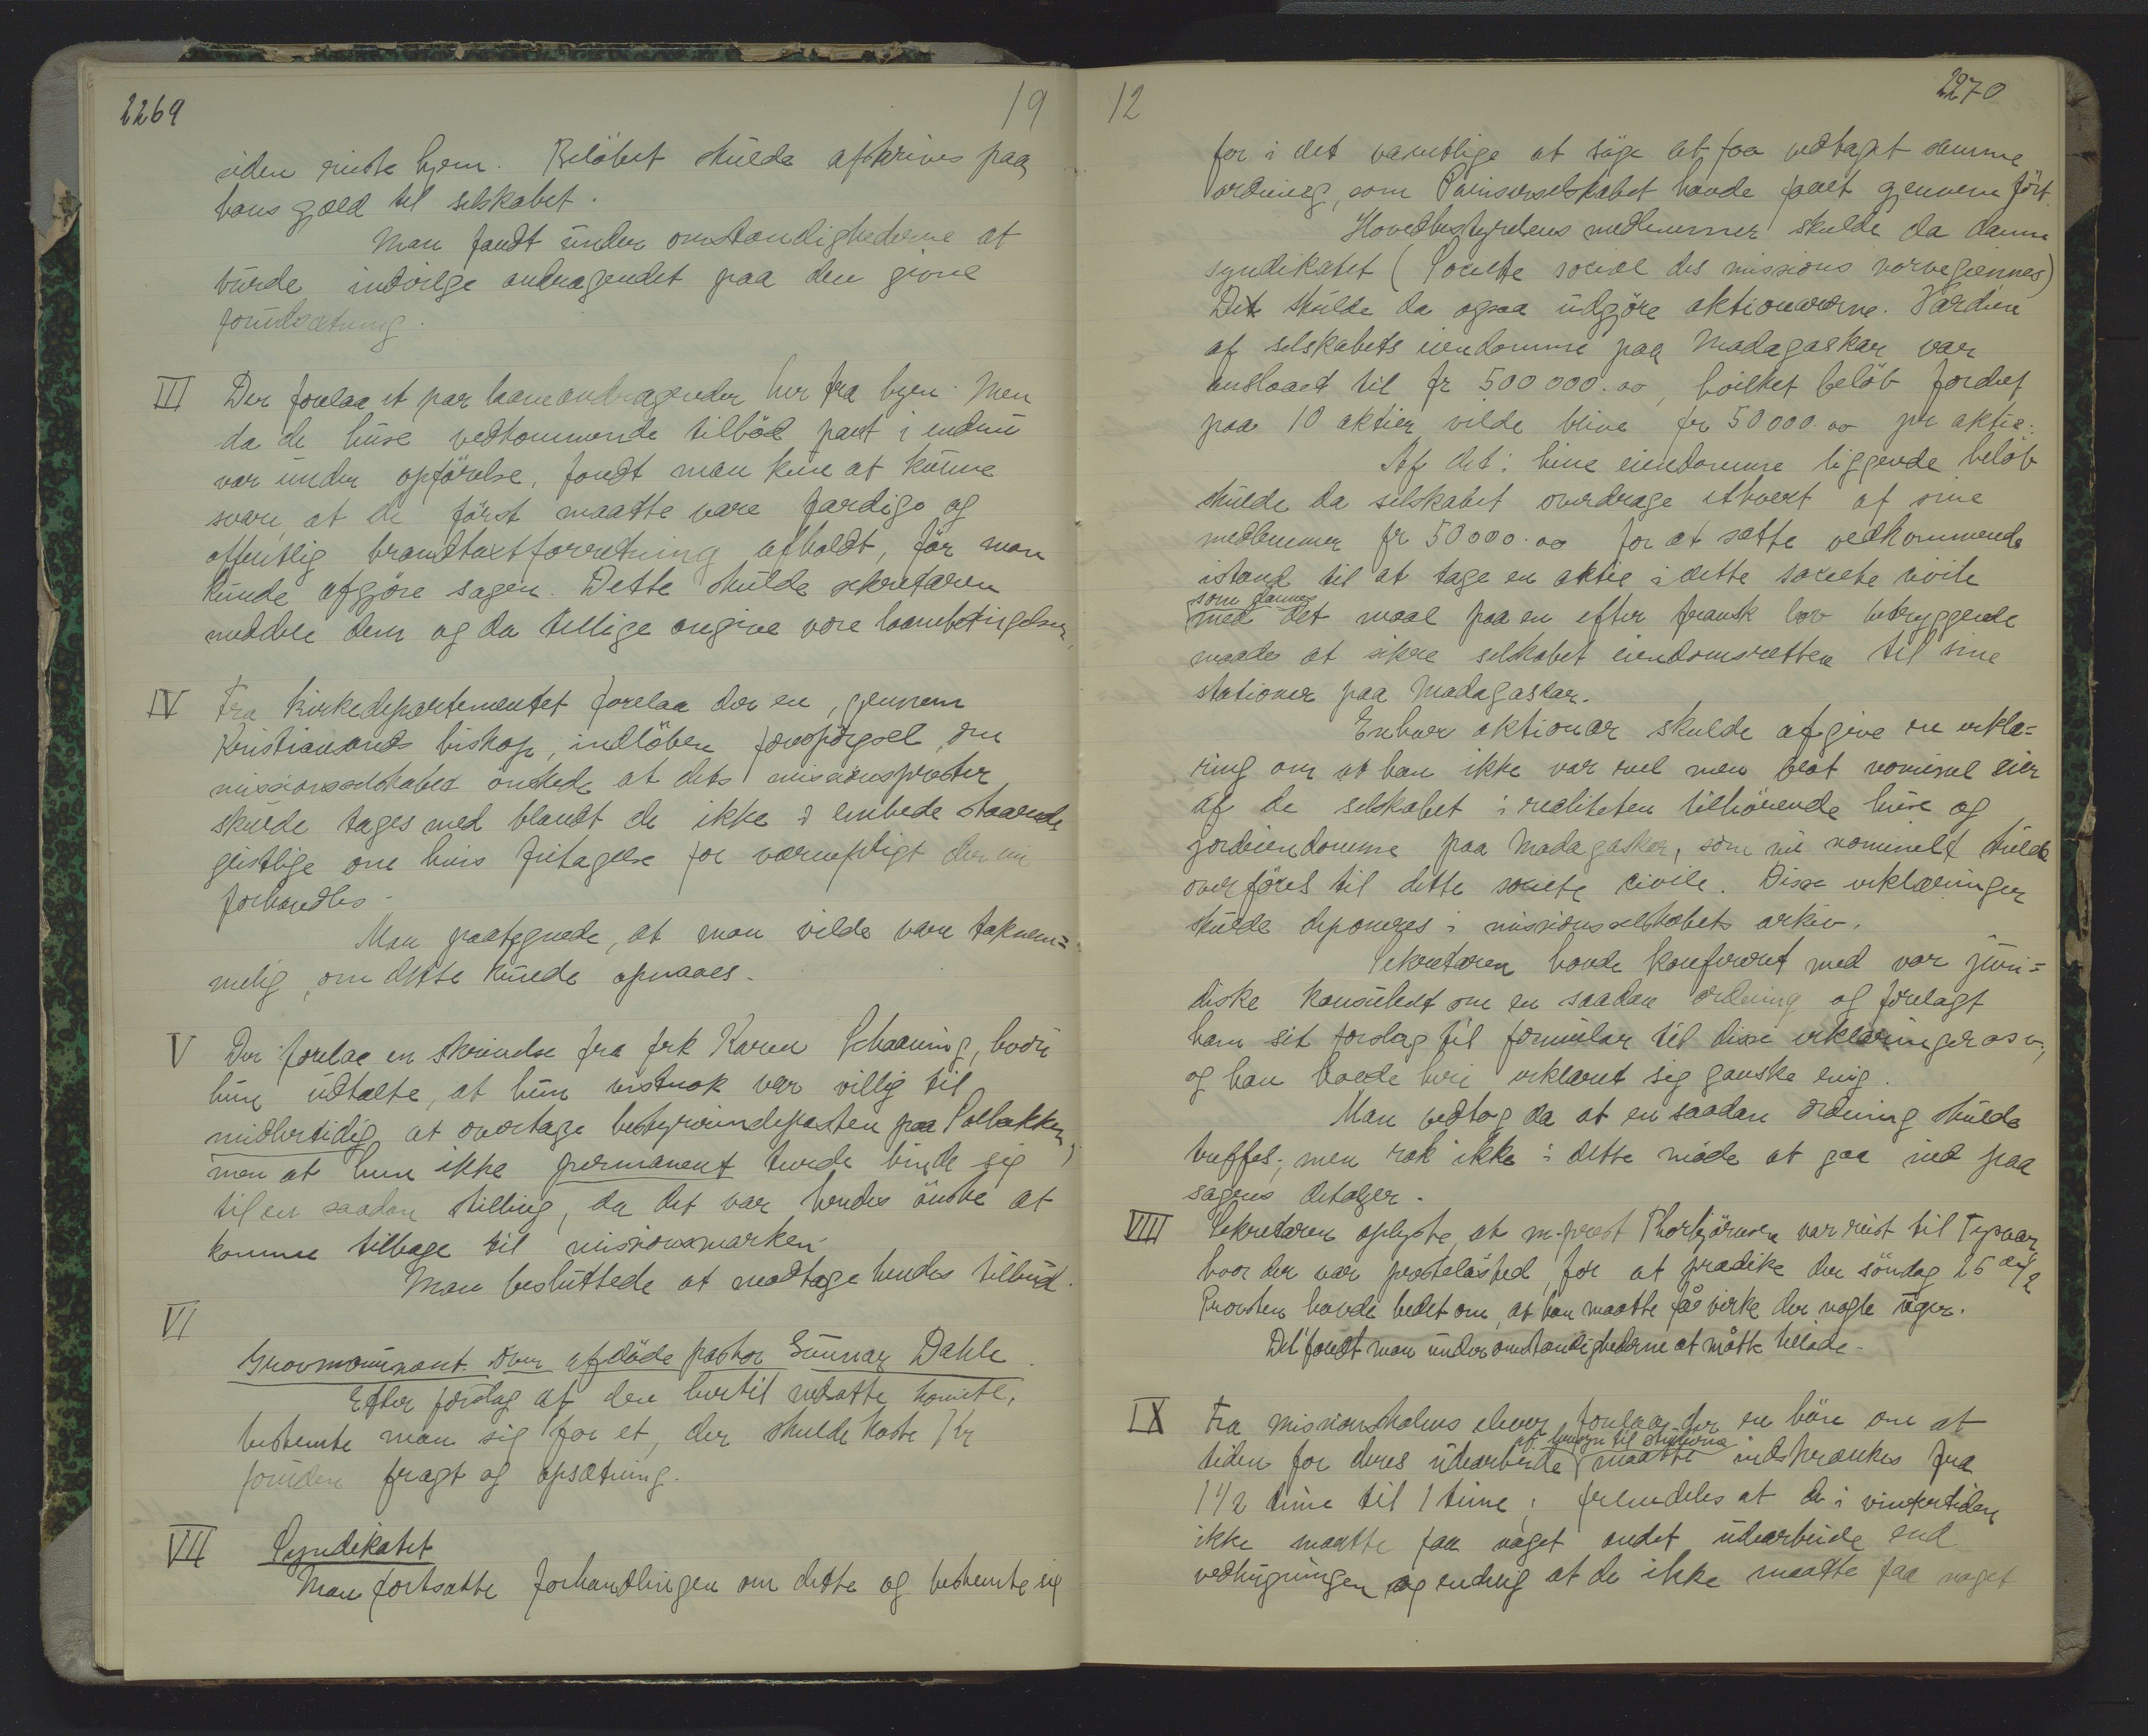 2269
19
siden reiste hjem. Beløbet skulde afskrives paa
hans gjæld til selskabet.
Man fandt under omstændighederne at
burde indvilge andragendet paa den givne
forudsætning.
III Der forelaa et par laaneandragender her fra byen. Men
da de huse vedkommende tilbød pant i endnu
var under opførelse, fandt man kun at kunne
svare at de først maatte være færdige og
offentlig brandtaxtforretning afholdt, før man
kunde afgjøre sagen. Dette skulde sekretæren
meddele dem og da tillige angive vore laanebetingelser.
IV Fra Kirkedepartementet forelaa der en, gjennem
Kristiansands biskop, indløben forespørgsel, om
missionsselskabet ønskede at dets missionsprester
skulde tages med blandt de ikke i embede staaende
geistlige om hvis fritagelse for værnepligt der nu
forhandles.
Man paategnede, at man vilde være taknem=
melig, om dette kunde opnaaes.
V Der forelaa en skrivelse fra frk Karen Schaaning, hvori
hun udtalte, at hun vistnok var villig til
midlertidig at overtage bestyrerindeposten paa Solbakken,
men at hun ikke permanent turde binde sig
til en saadan stilling, da det var hendes ønske at
komme tilbage til missionsmarken.
Man besluttede at modtage hendes tilbud.
VI
Gravmonument over afdøde pastor Gunnar Dahle.
Efter forslag af den hertil nedsatte komite,
bestemte man sig for et, der skulde koste Kr
foruden fragt og opsætning.
VII Syndikatet
Man fortsatte forhandlingen om dette og bestemte sig
12
2270
for i det væsentlige at søge at faa vedtaget samme
ordning, som Pariserselskabet havde faaet gjennemført.
Hovedbestyrelsens medlemmer skulde da danne
syndikatet (Societe social des missions norvegiennes)
De skulde da ogsaa udgjøre aktionærerne. Værdien
af selskabets eiendomme paa Madagaskar var
anslaaet til fr 500000.00, hvilket beløb fordelt
paa 10 aktier vilde blive fr 50000.00 pr aktie.
Af det i hine eiendomme liggende beløb
skulde da selskabet overdrage ethvert af sine
medlemmer fr 50000.00 for at sætte vedkommende
istand til at tage en aktie i dette societe civile
som dannes
med det maal paa en efter fransk lov betryggende
maade at sikre selskabet eiendomsretten til sine
stationer paa Madagaskar.
Enhver aktionær skulde afgive en erklæ=
ring om at han ikke var reel men blot nominel eier
af de selskabet i realiteten tilhørende huse og
jordeiendomme paa Madagaskar, som nu nominelt skulde
overføres til dette societe civile. Disse erklæringer
skulde deponeres i missionsselskabets arkiv.
Sekretæren havde konfereret med vor juri=
diske konsulent om en saadan ordning og forelagt
ham sit forslag til formular til disse erklæringer osv,
og han havde heri erklæret sig ganske enig.
Man vedtog da at en saadan ordning skulde
træffes; men rak ikke i dette møde at gaa ind paa
sagens detaljer.
VIII Sekretæren oplyste, at m-prest Thorbjørnsen var reist til Tysvær
hvor der var presteløshed, for at prædike der søndag 25
Provsten havde bedt om, at han maatte få virke der nogle uger.
Det fandt man under omstændighederne at måtte tillade.
IX Fra missionsskolens elever forelaa der en bøn om at
af hensyn til studierne
tiden for deres udearbeide maatte indskrænkes fra
1 1/2 time til 1 time; fremdeles at de i vintertiden
ikke maatte faa noget andet udearbeide end
vedhugningen og endelig at de ikke maatte faa noget